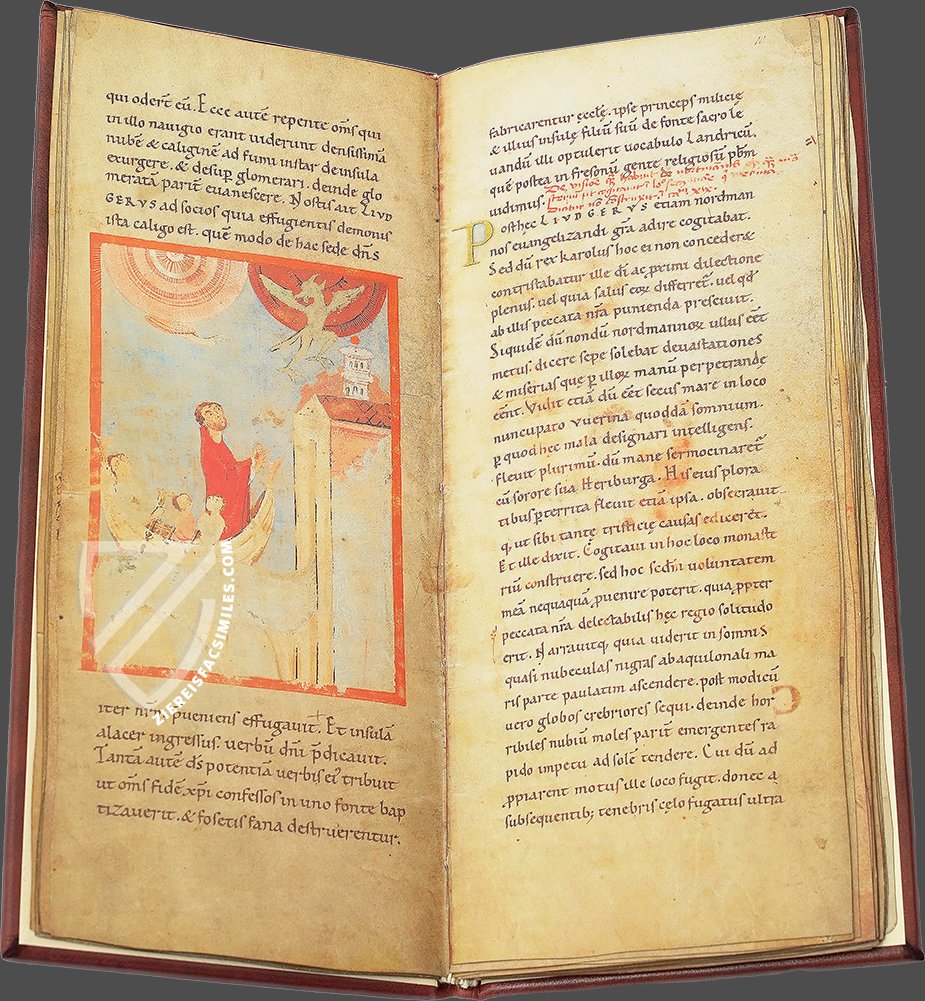 qui odert̄ eū. Ecce autē repente om̄s qui
in illo nauigio erant uiderunt densissimā
nubē & caliginē ad fumi instar de insula
exurgere. & desup̄ glomerari. deinde glo
meratā partē euanescere. Nostis ait LIVD
GERVS ad socios quia effugientis demonis
ista caligo est. quē modo de hac sede dn̄s
iter nr̄m pueniens effugauit. Et insulā
alacer ingressus. uerbū dn̄i p̄dicauit.
Tantā autē ds̄ potentiā uerbis ei' tribuit
ut om̄s fidē xp̄i confessos in uno fonte bap
tizauerit. & fosetis fana destruerentur.
ZIEREISFACSIMILES.COM
10
fabricarentur ęcclę. ipse princeps milicię
& illius insulę filiū suū de fonte sacro le
uandū illi optulerit uocabulo Landricū.
quē postea in fresonū gente religiosū pb̄m
uidimus.
Posthec LIVDGERVS etiam nordman
nos euangelizandi gr̄a adire cogitabat.
Sed dū rex karolus hoc ei non concederæ
contristabatur ille dī ac p̄rimi dilectione
plenus. uel quia salus eorꝝ differret̄. uel qd̄
ab illis peccata nr̄a punienda presciuit.
Siquidē dū nondū nordmannorꝝ ullus eēt
metus. dicere sepe solebat deuastationes
& miserias que p̄ illorꝝ manū perpetrandę
eēnt. Vidit etiā dū eēt secus mare in loco
nuncupato vuerina quoddā somnium.
p̄ quod hec mala designari intelligens.
fleuit plurimū. dū mane sermocinaret̄
cū sorore sua Heriburga. His eius plora
tibus p̄territa fleuit etiā ipsa. obsecrauit
q, ut sibi tantę tristicię causas ediceret.
Et ille dixit. Cogitaui in hoc loco monast
riū construere. sed hoc scdm̄ uoluntatem
meā nequaquā puenire poterit. quia ꝓpter
peccata nr̄a delectabilis hęc regio solitudo
erit. Narrauitq, quia uiderit in somnis
quasi nubeculas nigras ab aquilonali ma
ris parte paulatim ascendere. post modicū
uero globos crebriores sequi. deinde hor
ribiles nubiū moles parit̄ emergentes ra
pido impetu ad solē tendere. Cui dū ad
ꝓpiarent motus ille loco fugit. donec a
subsequentib; tenebris cęlo fugatus ultra